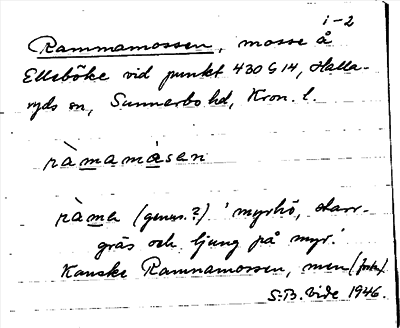 i-2
Rammamossen, mosse å
Ellsböke vid punkt 430 G 14, Halla-
ryds sn, Sunnerbo hd, Kron. l.
ràmamåsen
ràma (genus?) 'myrhö, starr-
gräs och ljung på myr.'
Kanske Rammamossen, men
S.-B. Vide 1946.